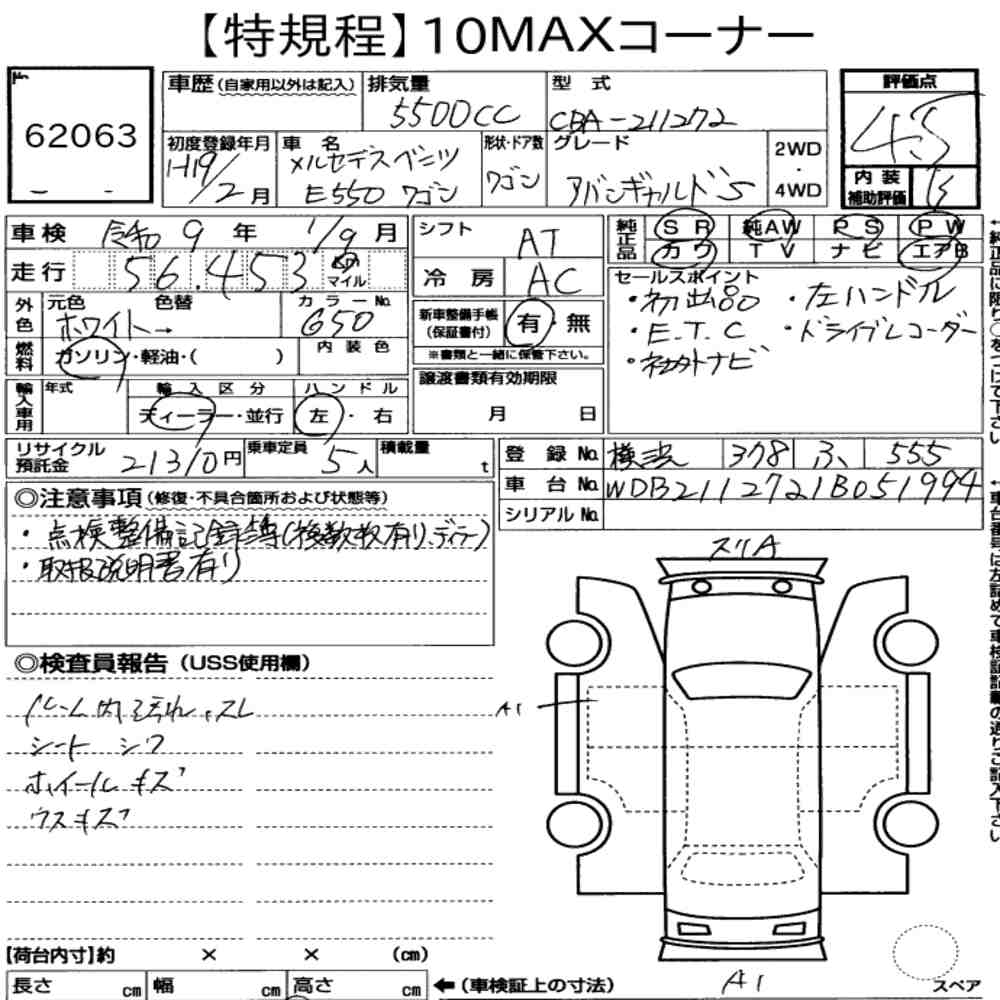 【特規程】10MAXコーナー
62063
車歴(自家用以外は記入) 排気量 5500CC 型式 CBA-211272 評価点 4.5
初度登録年月 H19/2月 車名 メルセデスベンツ E550 ワゴン 形状・ドア数 ワゴン グレード アバンギャルドS 2WD・4WD 内装補助評価 B
車検 令和 9年 1/9月 シフト AT 純正品 SR 純AW PS PW
カワ TV ナビ エアB
走行 56.453 Km マイル 冷房 AC
セールスポイント
・初出品 ・左ハンドル
・E.T.C ・ドライブレコーダー
・社外ナビ
外色 元色 ホワイト→ 色替 カラーNo. 650
新車整備手帳(保証書付) 有・無
※書類と一緒に保管下さい。
燃料 ガソリン・軽油・( ) 内装色
輸入車用 年式 輸入区分 ディーラー・並行 ハンドル 左・右
譲渡書類有効期限 月 日
リサイクル預託金 21310円 乗車定員 5人 積載量 t
登録No. 横浜 378 ふ 555
車台No. WDB2112721B051994
シリアルNo.
◎注意事項(修復・不具合箇所および状態等)
・点検整備記録簿(複数枚有り、ディーラー)
・取扱説明書有り
◎検査員報告(USS使用欄)
シート シワ
ホイール キズ
ウスキズ
スリA
A1
A1
スペア
【荷台内寸】約 × × (cm)
長さ cm 幅 cm 高さ cm ←(車検証上の寸法)